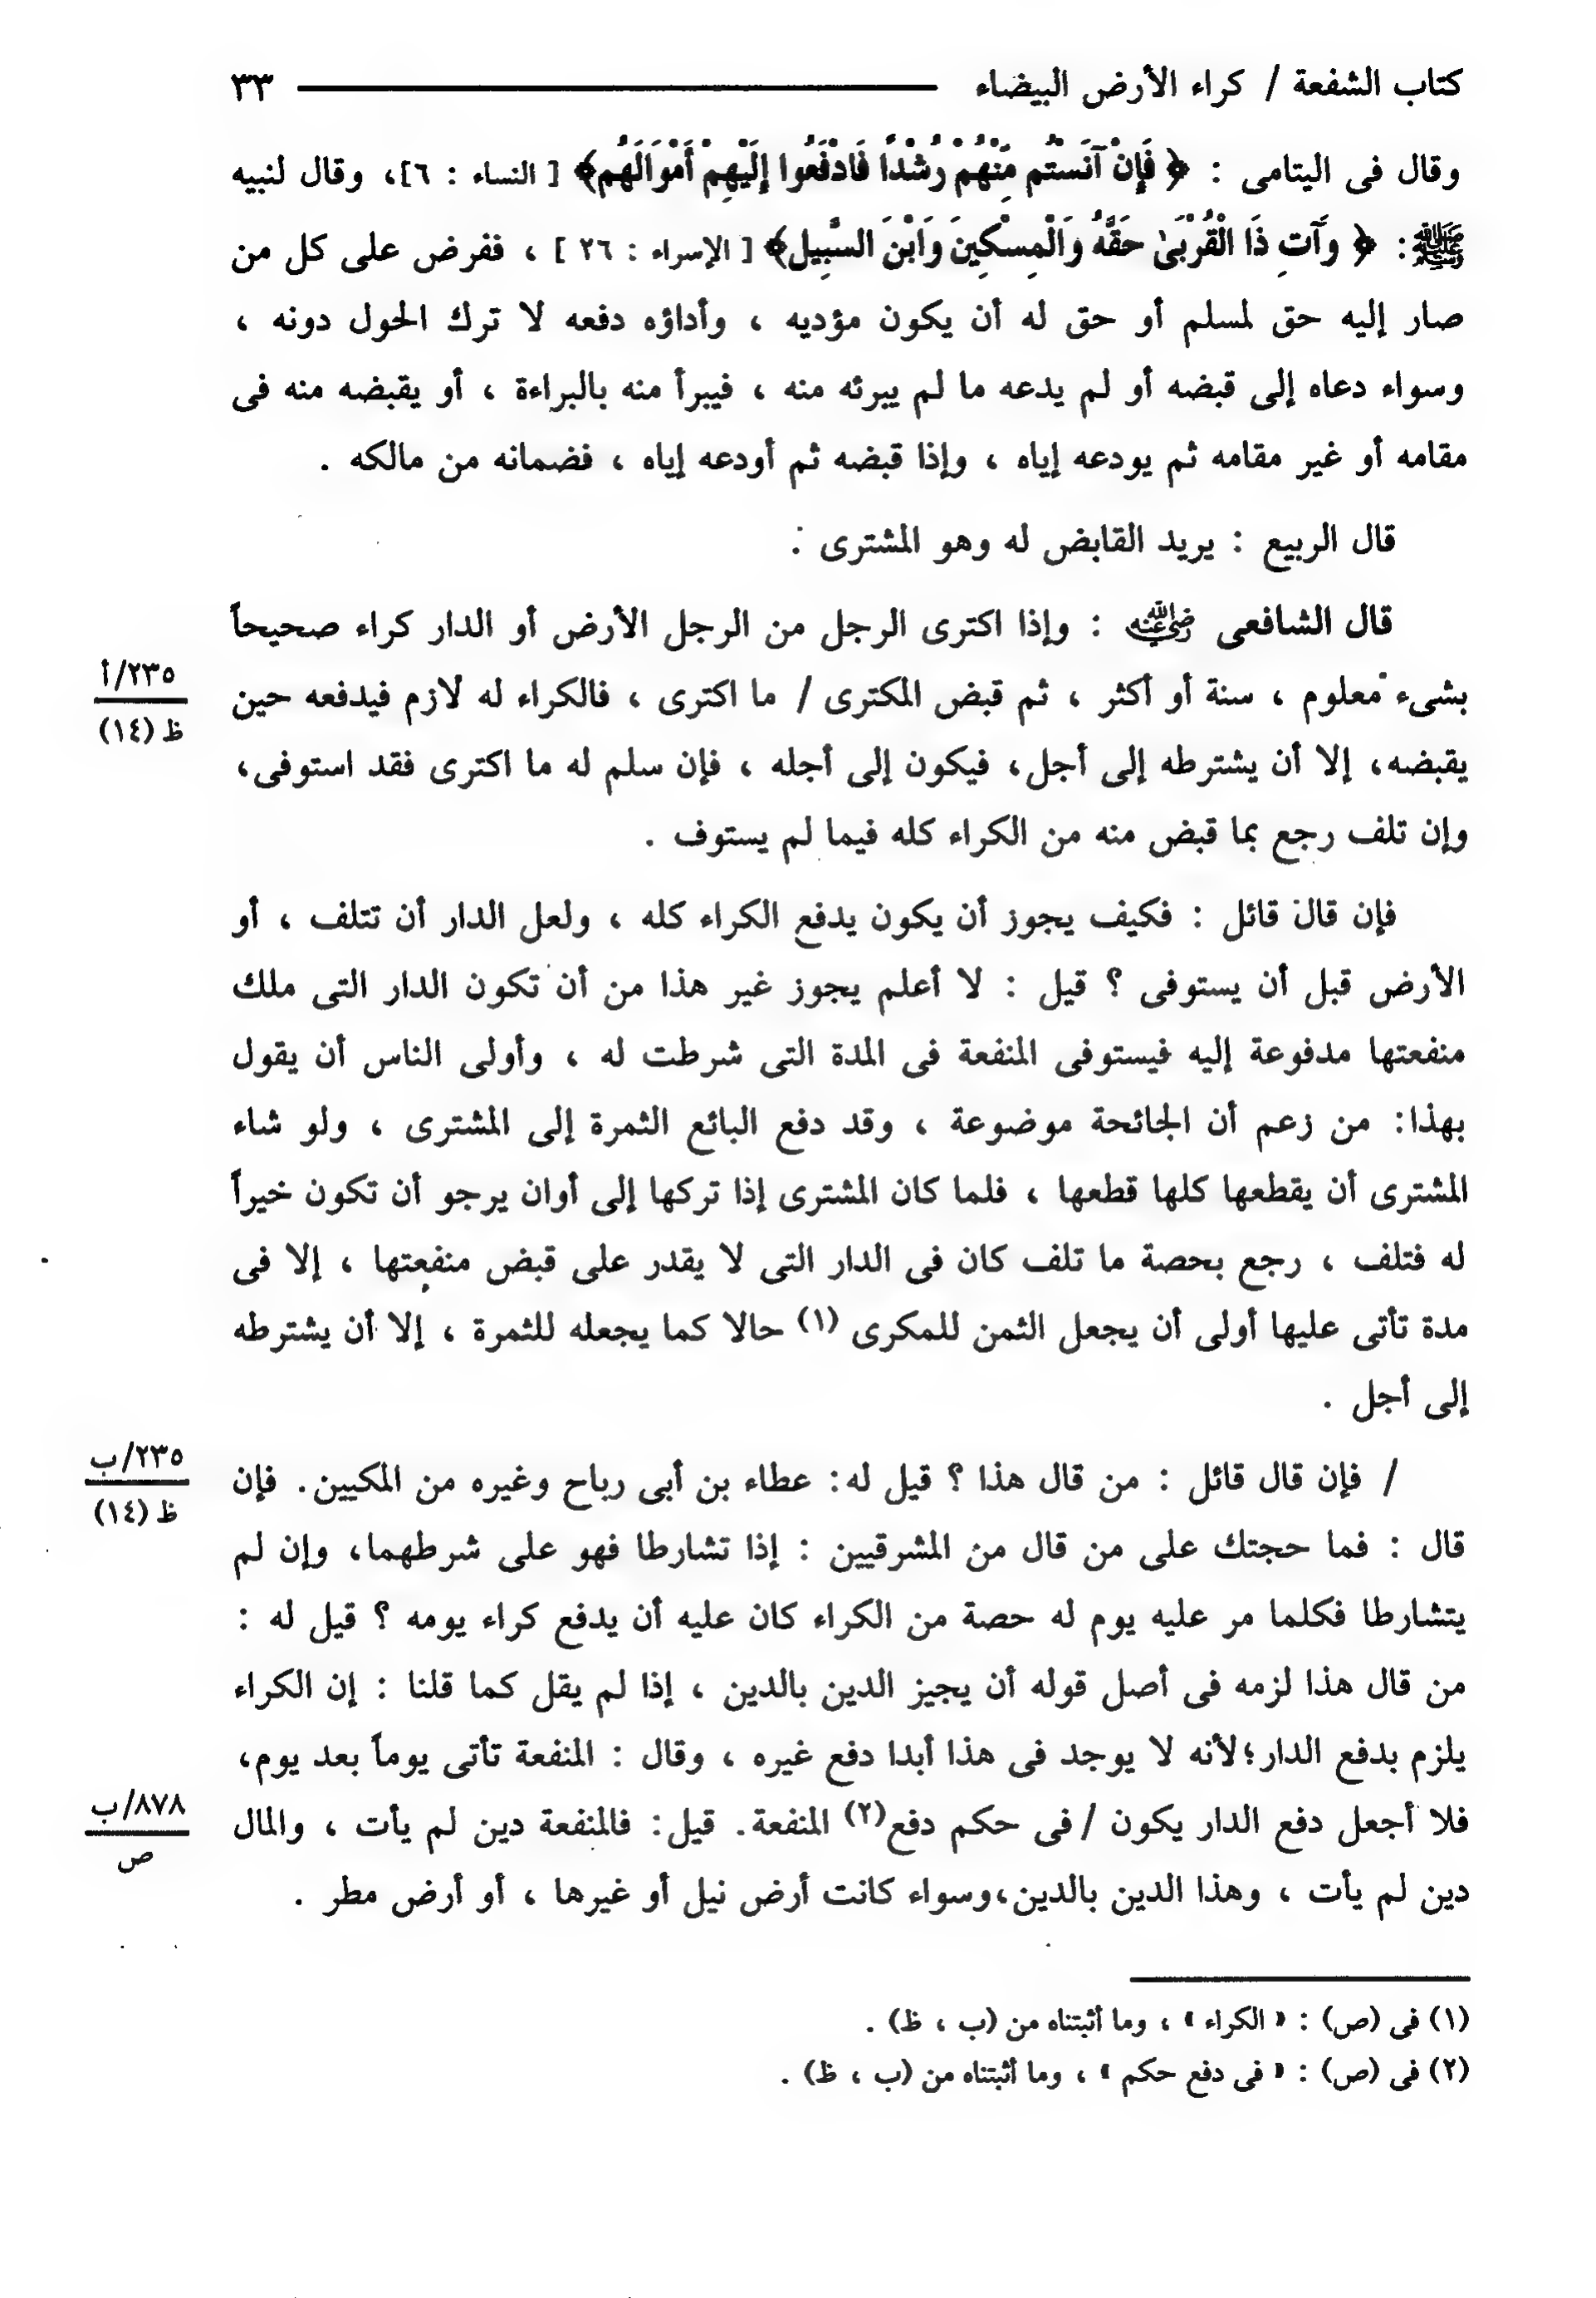 كتاب الشفعة / كراء الأرض البيضاء ٣٣
وقال فى اليتامى : ﴿ فَإِنْ آنَسْتُم مِّنْهُمْ رُشْدًا فَادْفَعُوا إِلَيْهِمْ أَمْوَالَهُم﴾ [ النساء : ٦]، وقال لنبيه
ﷺ: ﴿ وَآتِ ذَا الْقُرْبَىٰ حَقَّهُ وَالْمِسْكِينَ وَابْنَ السَّبِيل﴾ [ الإسراء : ٢٦ ] ، ففرض على كل من
صار إليه حق لمسلم أو حق له أن يكون مؤديه ، وأداؤه دفعه لا ترك الحول دونه ،
وسواء دعاه إلى قبضه أو لم يدعه ما لم يبرئه منه ، فيبرأ منه بالبراءة ، أو يقبضه منه فى
مقامه أو غير مقامه ثم يودعه إياه ، وإذا قبضه ثم أودعه إياه ، فضمانه من مالكه .
قال الربيع : يريد القابض له وهو المشترى .
قال الشافعى رضي الله عنه : وإذا اكترى الرجل من الرجل الأرض أو الدار كراء صحيحاً
٢٣٥/أ
بشىء معلوم ، سنة أو أكثر ، ثم قبض المكترى / ما اكترى ، فالكراء له لازم فيدفعه حين
ظ (١٤)
يقبضه، إلا أن يشترطه إلى أجل، فيكون إلى أجله ، فإن سلم له ما اكترى فقد استوفى،
وإن تلف رجع بما قبض منه من الكراء كله فيما لم يستوف .
فإن قال قائل : فكيف يجوز أن يكون يدفع الكراء كله ، ولعل الدار أن تتلف ، أو
الأرض قبل أن يستوفى ؟ قيل : لا أعلم يجوز غير هذا من أن تكون الدار التى ملك
منفعتها مدفوعة إليه فيستوفى المنفعة فى المدة التى شرطت له ، وأولى الناس أن يقول
بهذا: من زعم أن الجائحة موضوعة ، وقد دفع البائع الثمرة إلى المشترى ، ولو شاء
المشترى أن يقطعها كلها قطعها ، فلما كان المشترى إذا تركها إلى أوان يرجو أن تكون خيراً
له فتلف ، رجع بحصة ما تلف كان فى الدار التى لا يقدر على قبض منفعتها ، إلا فى
مدة تأتى عليها أولى أن يجعل الثمن للمكرى (١) حالا كما يجعله للثمرة ، إلا أن يشترطه
إلى أجل .
٢٣٥/ب
/ فإن قال قائل : من قال هذا ؟ قيل له: عطاء بن أبى رباح وغيره من المكيين. فإن
ظ (١٤)
قال : فما حجتك على من قال من المشرقيين : إذا تشارطا فهو على شرطهما، وإن لم
يتشارطا فكلما مر عليه يوم له حصة من الكراء كان عليه أن يدفع كراء يومه ؟ قيل له :
من قال هذا لزمه فى أصل قوله أن يجيز الدين بالدين ، إذا لم يقل كما قلنا : إن الكراء
يلزم بدفع الدار؛لأنه لا يوجد فى هذا أبدا دفع غيره ، وقال : المنفعة تأتى يوماً بعد يوم،
٨٧٨/ب
فلا أجعل دفع الدار يكون / فى حكم دفع(٢) المنفعة. قيل: فالمنفعة دين لم يأت ، والمال
ص
دين لم يأت ، وهذا الدين بالدين،وسواء كانت أرض نيل أو غيرها ، أو أرض مطر .
(١) فى (ص) : « الكراء » ، وما أثبتناه من (ب ، ظ) .
(٢) فى (ص) : « فى دفع حكم » ، وما أثبتناه من (ب ، ظ) .